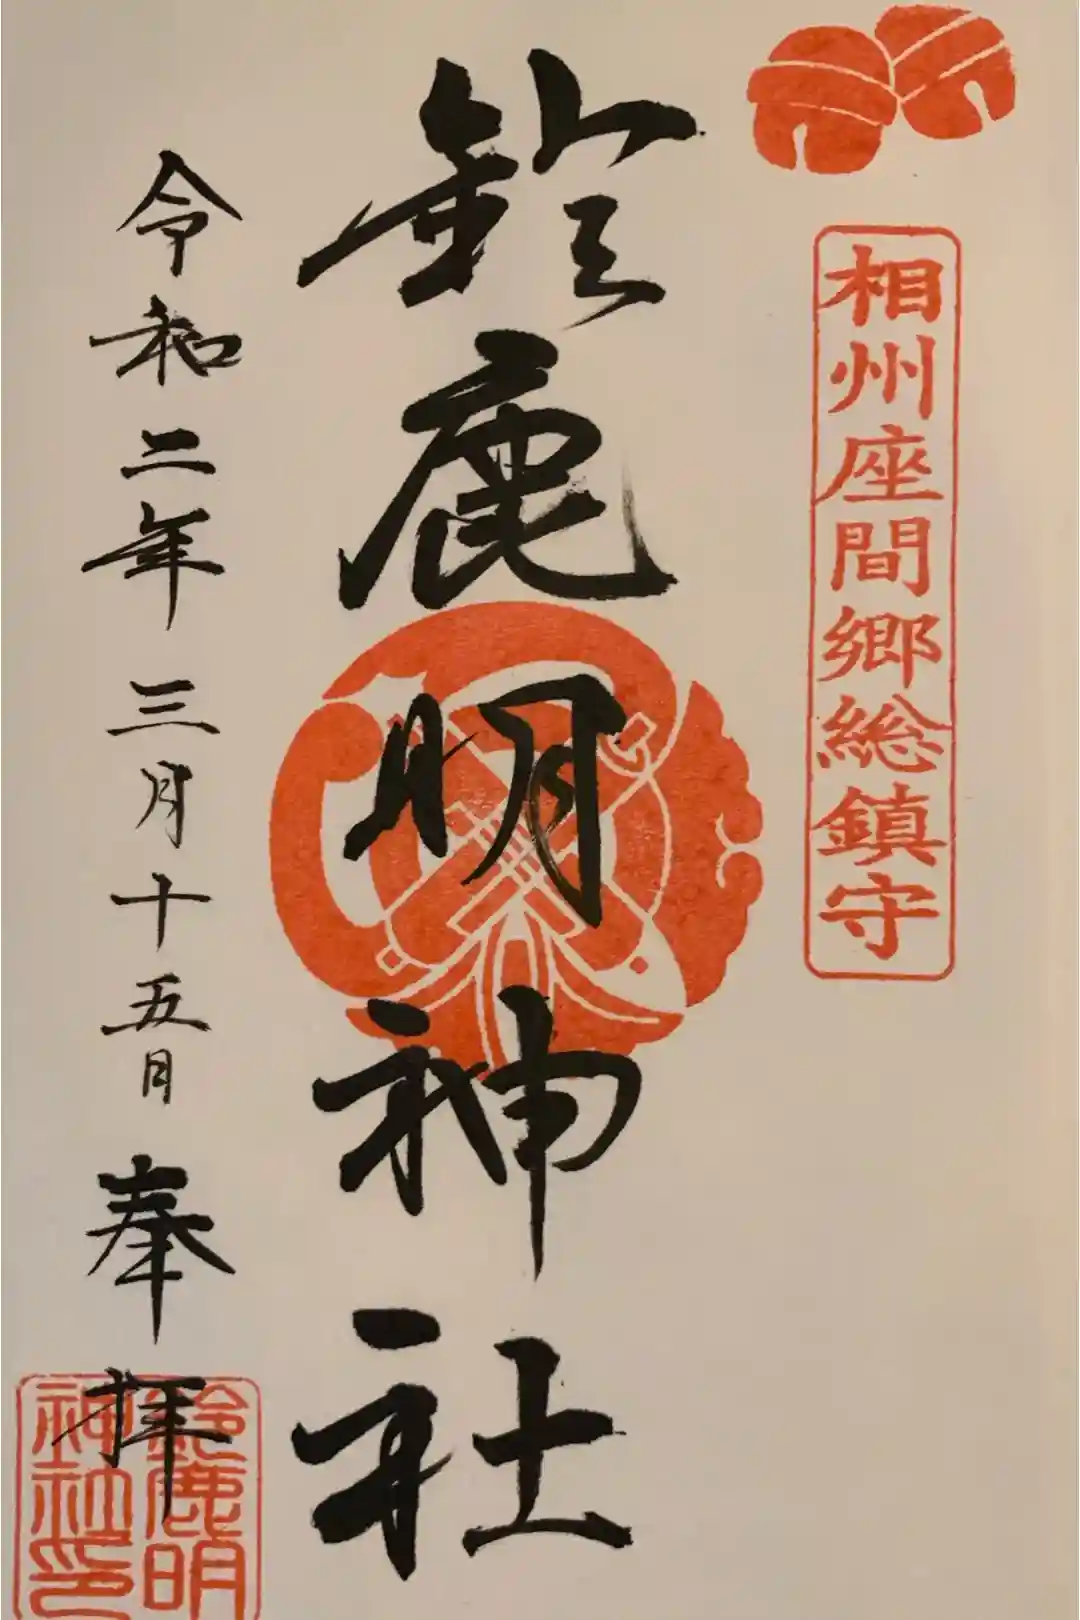 相州座間郷総鎮守
鈴鹿明神社
令和二年三月十五月奉拝
鈴鹿明
神社印